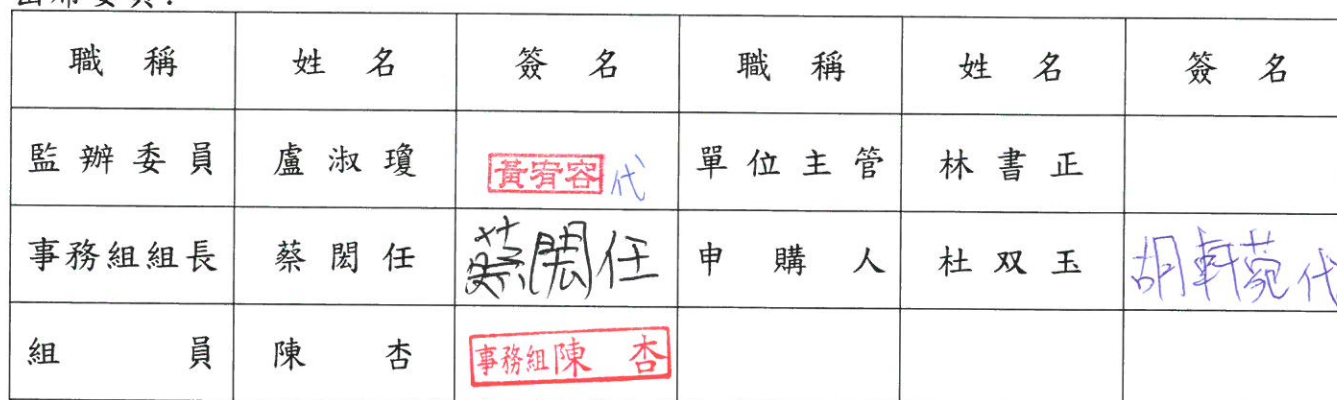 出席委員：
職稱 姓名 簽名 職稱 姓名 簽名
監辦委員 盧淑瓊 黃宥容代 單位主管 林書正
事務組組長 蔡閎任 蔡閎任 申購人 杜双玉 胡軒菀代
組員 陳杏 事務組陳杏